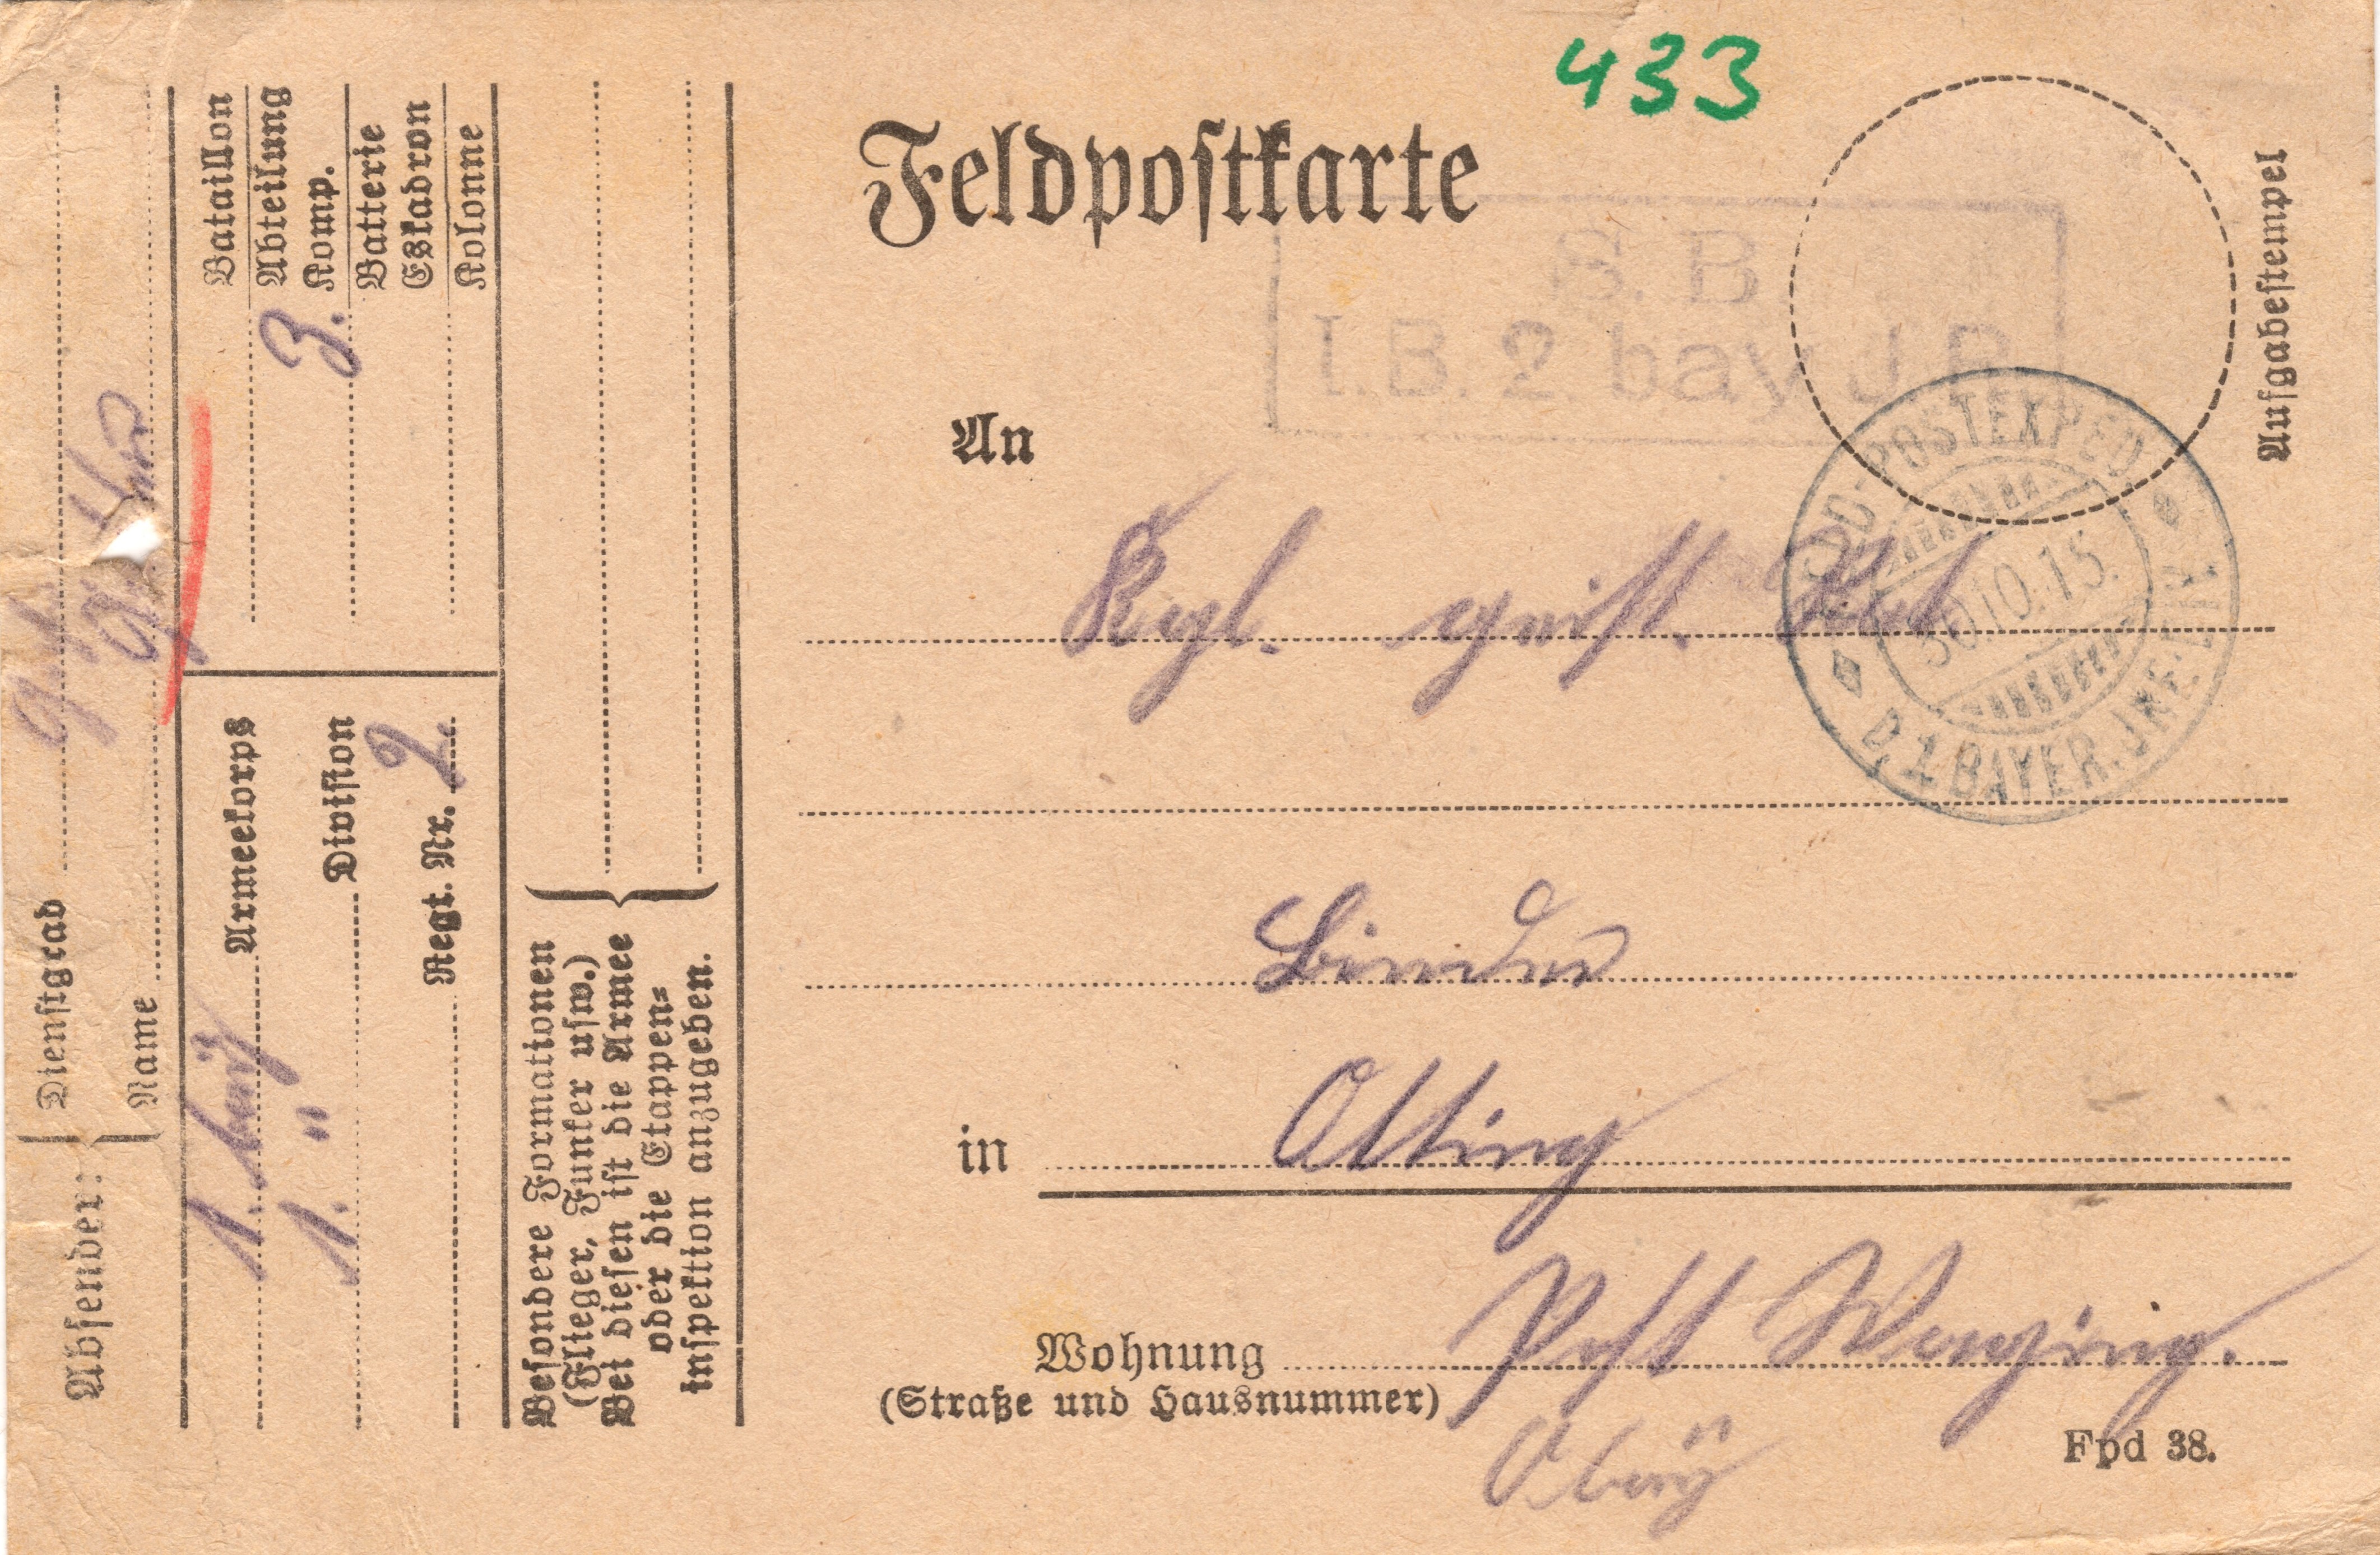 433
Feldpostkarte
Aufgabestempel
S. B
I. B. 2 bay J. R
An
Kgl. geistl. Rat
FELD-POSTEXPED
30.10.15.
D. 1 BAYER. INF. DIV.
Binder
in Otting
Wohnung Post Waging.
(Straße und Hausnummer)
Obay
Fpd 38.
Absender:
Dienstgrad
Name
1. bay Armeekorps
1. " Division
Regt. Nr. 2.
Bataillon
Abteilung
3. Komp.
Batterie
Eskadron
Kolonne
Besondere Formationen
(Flieger, Funker usw.)
Bei diesen ist die Armee
oder die Etappen-
inspektion anzugeben.